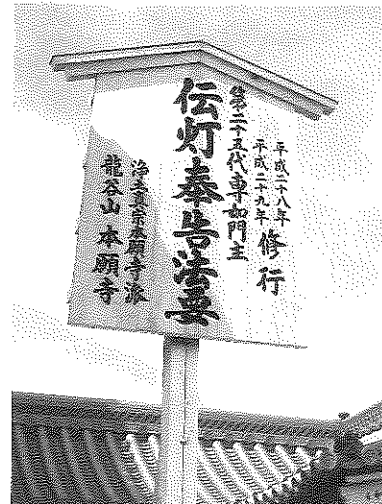 平成二十八年
平成二十九年
修行
第二十五代専如門主
伝灯奉告法要
浄土真宗本願寺派
龍谷山 本願寺